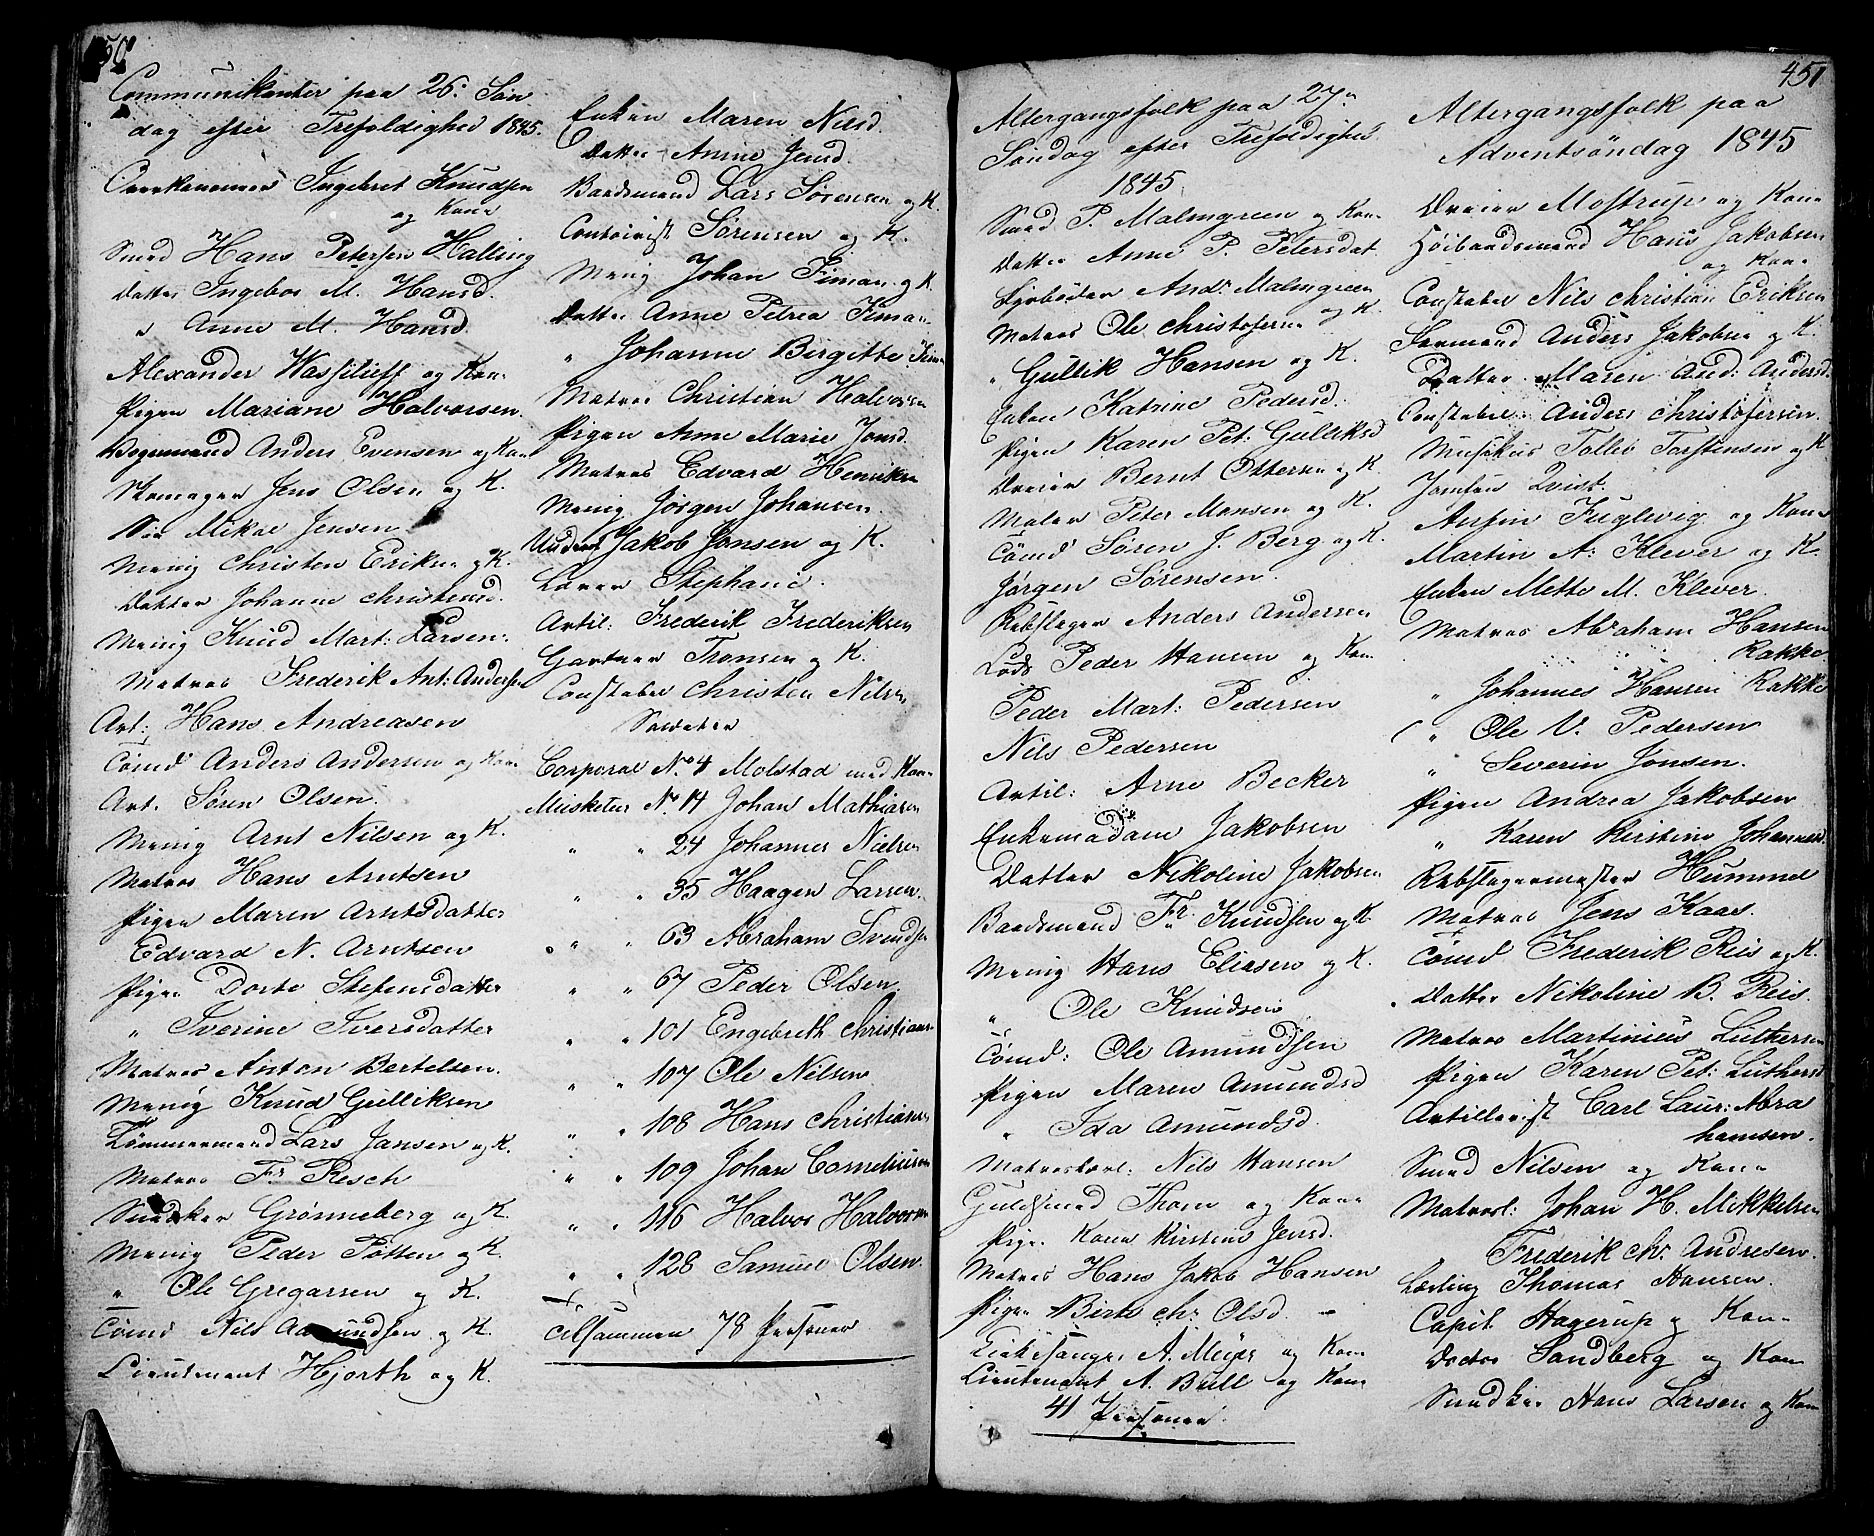 50
Communikanter paa 26. Søn
dag efter Trefoldighed 1845.
Ingebret Knudsen
og Kone
Smed Hans Petersen Halling
Datter Ingebor M. Hansd.
" Anne M. Hansd.
Alexander Wassilieff og Kone
Pigen Mariane Halvorsen
Vognmand Anders Evensen og Kone
Skomager Jens Olsen og K.
Mikal Jensen
Menig Christen Eriksen og K.
Datter Johanne Christensd.
Menig Knud Mart: Larsen.
Matros Frederik Ant: Andersen
Art: Hans Andreasen
Tømd Anders Andersen og Kone
Art. Søren Olsen.
Menig Arnt Nilsen og K.
Matros Hans Arntsen
Pigen Maren Arntsdatter
Edvard N. Arntsen
Pigen Dorte Stefensdatter
" Iverine Iversdatter
Matros Anton Bertelsen.
Menig Knud Gulliksen
Tømmermand Lars Jansen og K.
Matros Fr. Resch
Snedker Grønneberg og K.
Menig Peder Potten og K.
" Ole Gregarsen og K.
Tømd Nils Aamundsen og K.
Lieutenant Hjorth og K.
Enken Maren Nilsd
Datter Anne Jensd.
Baadsmand Lars Sørensen og K.
Contoirist Sørensen og K.
Menig Johan Fiman og K.
Datter Anne Petrea Fiman
" Johanne Birgitte Fiman
Matros Christian Halvorsen
Pigen Anne Marie Jonsd.
Matros Edvard Henriksen
Menig Jørgen Johansen.
Jakob Jansen og K.
Lærer Stephanie.
Artil: Frederik Frederiksen
Gartner Tronsen og K.
Constabel Christen Nilsen
Soldater
Corporal No. 4 Molstad med Kone
Musketeer No. 14 Johan Mathiasen
" " 24 Johannes Nielsen
" " 35 Haagen Larsen.
" " 63 Abraham Svendsen
" " 67 Peder Olsen.
" " 101 Engebreth Christiansen
" " 107 Ole Nilsen
" " 108 Hans Christiansen
" " 109 Johan Corneliusen
" " 116 Halvor Halvorsen
" " 128 Samuel Olsen.
Tilsammen 78 Personer
451
Altergangsfolk paa 27de
Søndag efter Trefoldighed
1845.
Smed P. Malmgreen og Kone
Datter Anne P. Petersdat
Fyrbøder Andr. Malmgreen
Matros Ole Christofersen og K.
" Gullik Hansen og K.
Enken Katrine Pedersd.
Pigen Karen Pet: Gulliksd
Dreier Bernt Ottersen og K.
Maler Peter Monsen og K.
Tømd Søren J. Berg og K.
Jørgen Sørensen.
Rebslager Anders Andersen
Lods Peder Hansen og Kone
Peder Mart: Pedersen
Nils Pedersen
Artil: Arne Becker
Enkemadam Jakobsen
Datter Nikoline Jakobsen
Baadsmand Fr. Knudsen og K.
Menig Hans Eliesen og K.
" Ole Knudsen
Tømd: Ole Amundsen
Pigen Maren Amundsd
" Ida Amundsd.
Nils Hansen
Guldsmed Thom og Kone
Pige Karen Kirstine Jensd.
Matros Hans Jakob Hansen
Pigen Birte Chr. Olsd. -
Kirkesanger A. Meyer og Kone
Lieutenant A. Bull og Kone
41 Personer
Altergangsfolk paa
Adventsöndag 1845
Dreier Mostrup og Kone
Høibaadsmand Hans Jakobsen
og Kone
Constabel Nils Christian Eriksen
Formand Anders Jakobsen og K.
Datter Maren And: Andersd.
Constabel Anders Christofersen.
Musikus Tollev Torstensen og K
Jomfru Qvist.
Fuglevig og Kone
Martin A: Klever og K.
Enken Mette M. Klever.
Matros Abraham Hansen
Rakke
" Johannes Hansen Rakke
" Ole V. Pedersen
" Severin Jonsen.
Pigen Andrea Jakobsen
" Karen Kirstine Johannesd.
Rebslagermester Hummel
Matros Jens Kaas.
Tømd Frederik Reis og K.
Datter Nikoline B. Reis.
Matros Martinius Luthersen
Pigen Karen Pet: Luthersd
Artillerist Carl Laur: Abra
hamsen.
Smed Nilsen og Kone
Matrosl: Johan H. Mikkelsen
" Frederik Chr. Andresen.
Lærling Thomas Hansen.
Capit Hagerup og Kone
Doctor Sandberg og Kone
Snedker Hans Larsen og Kone